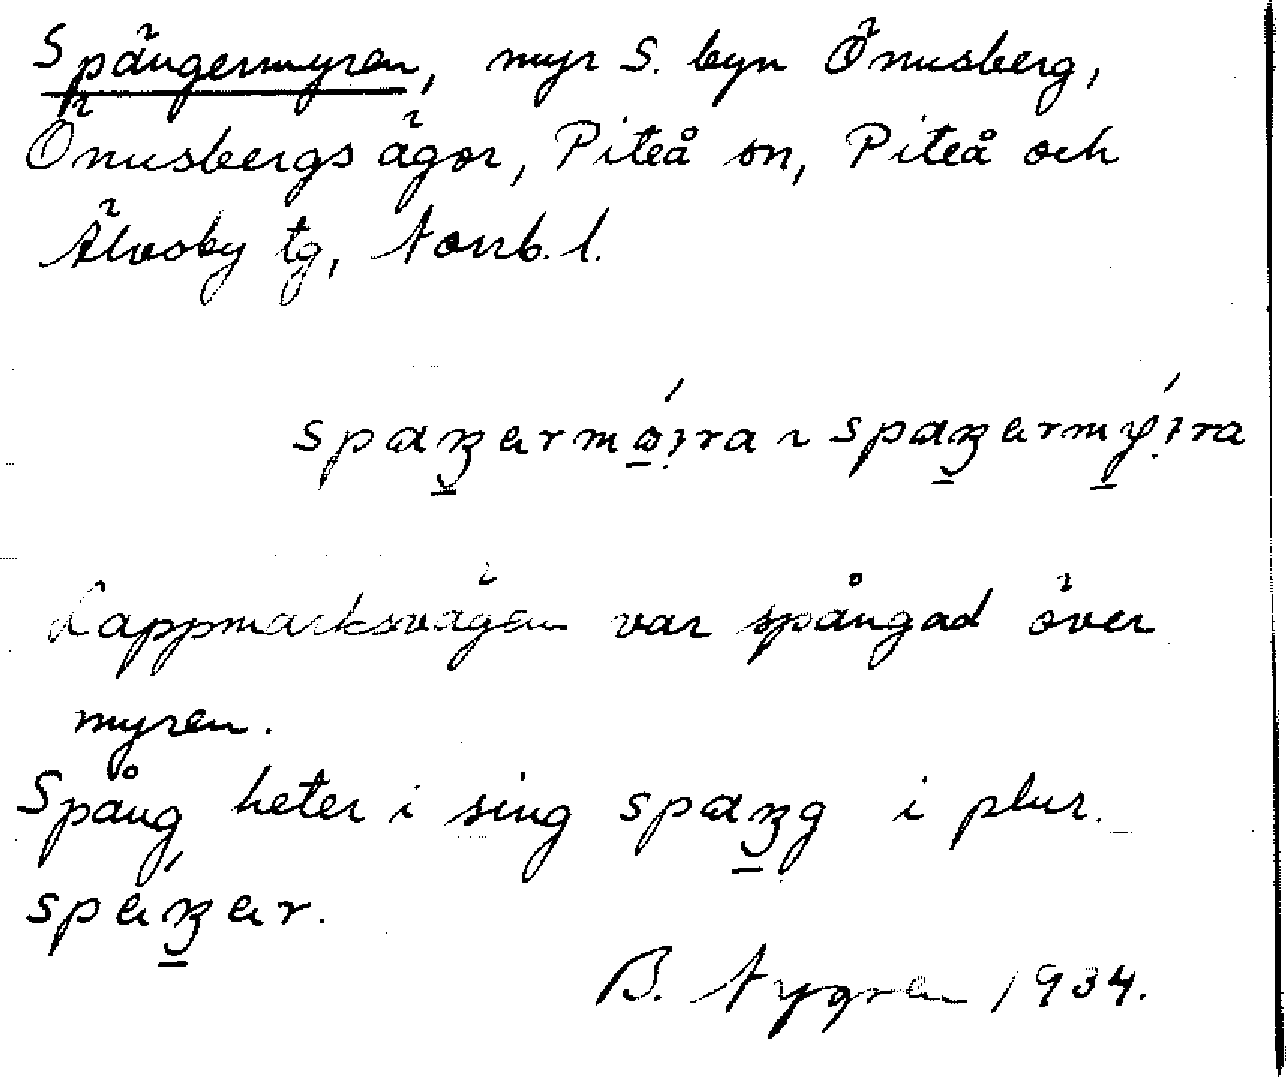 Spängermyren, myr S. byn Önusberg,
Önusbergs ägor, Piteå sn, Piteå och
Älvsby tg, Norrb. l.
Lappmarksvägen var spångad över
myren.
Spång heter i sing spaŋg i plur.
spaŋar.
B. Nygren 1934.